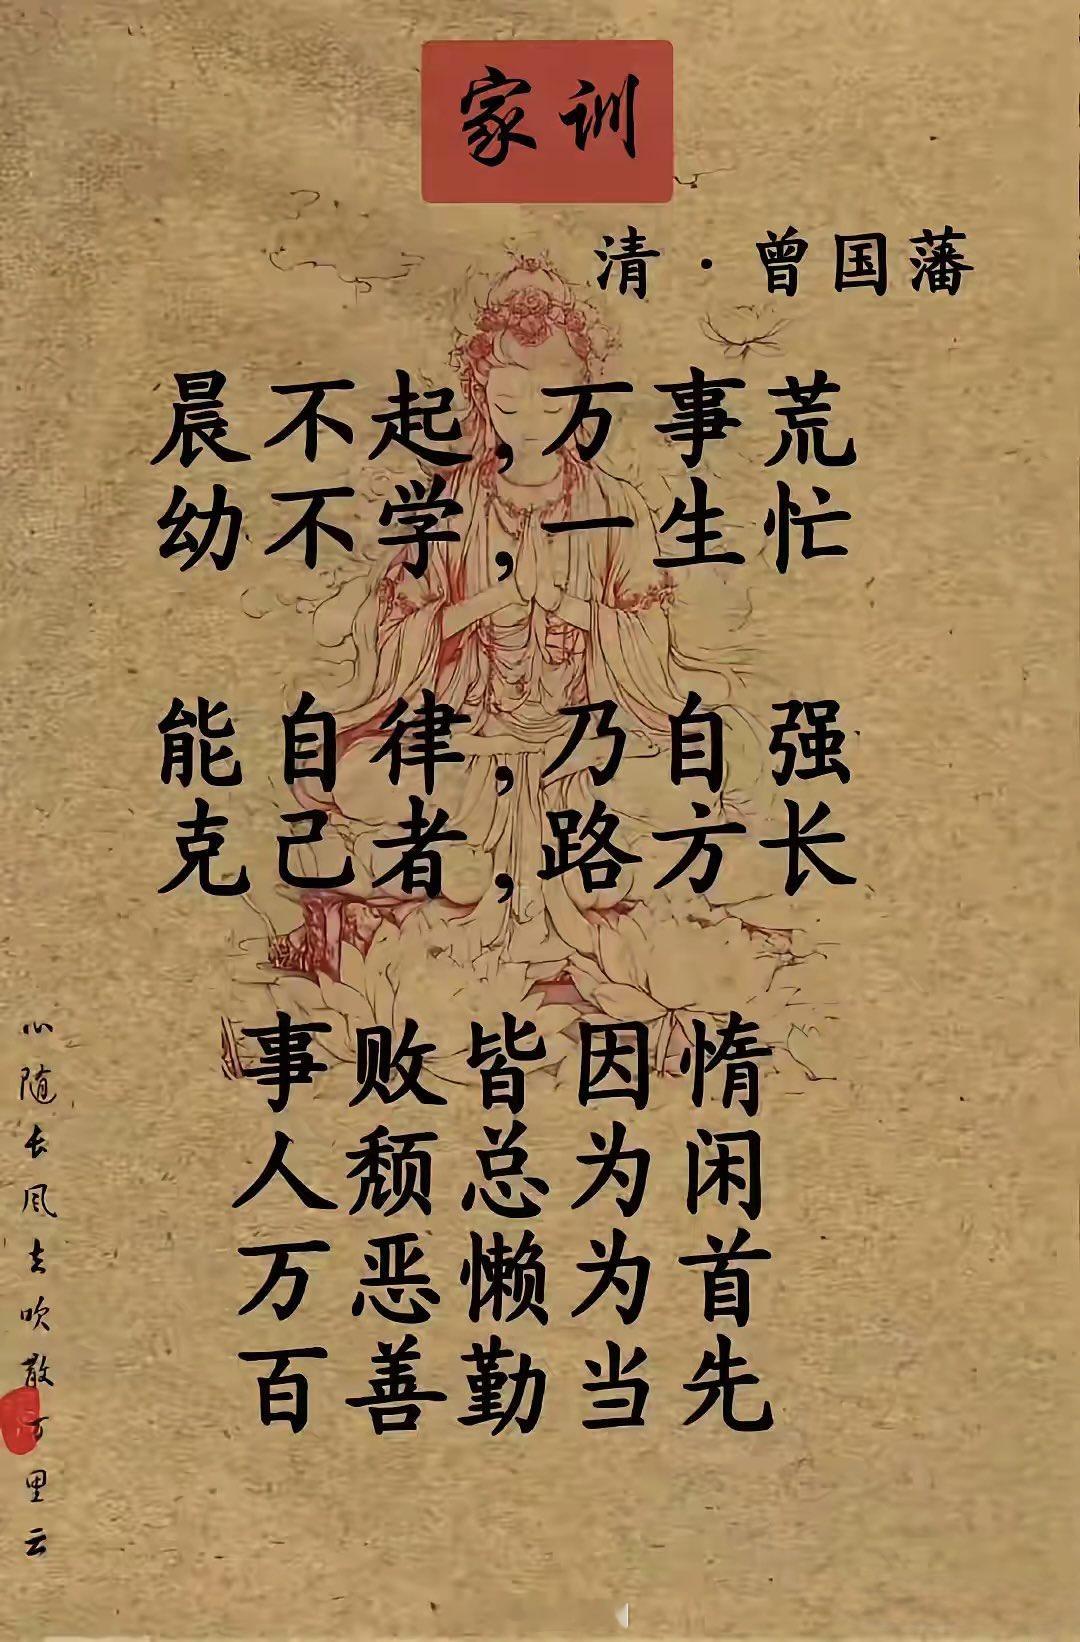 家训
清·曾国藩
晨不起,万事荒
幼不学,一生忙
能自律,乃自强
克己者,路方长
事败皆因惰
人颓总为闲
万恶懒为首
百善勤当先
心随长风去吹散万里云